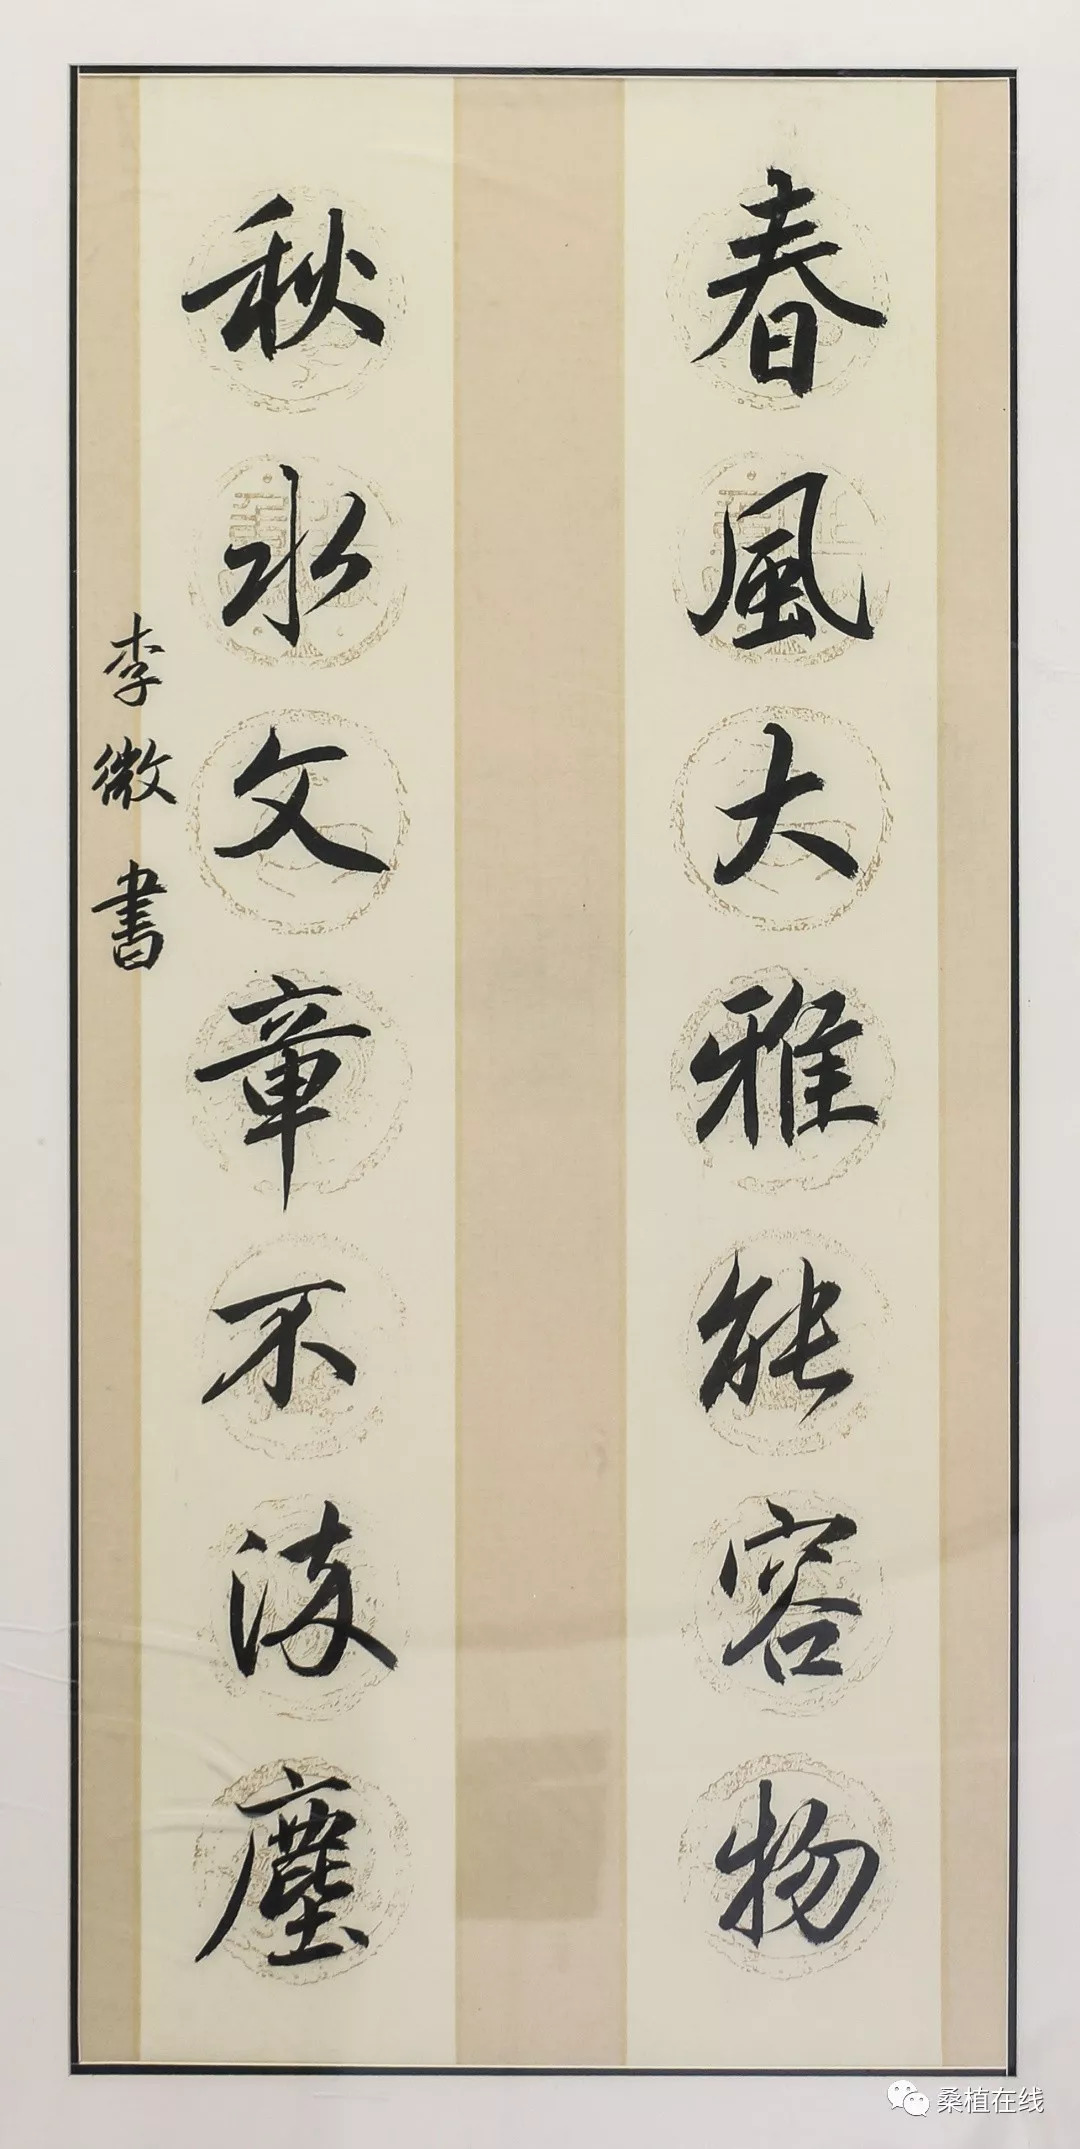 春風大雅能容物
秋水文章不染塵
李微書
桑植在线